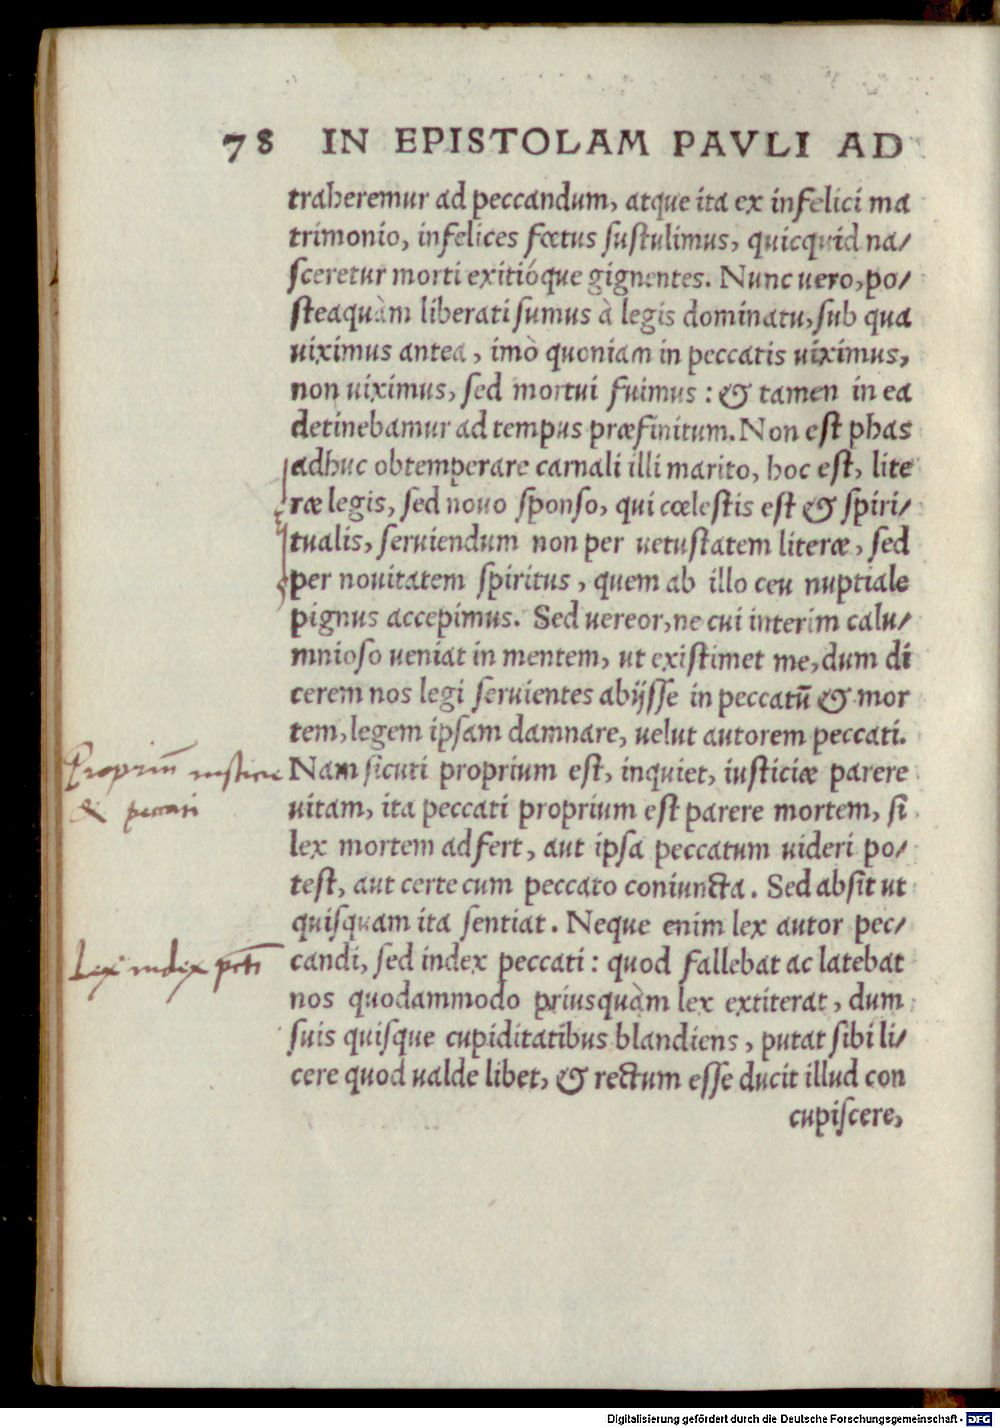 78 IN EPISTOLAM PAVLI AD
traheremur ad peccandum, atque ita ex infelici ma
trimonio, infelices fœtus ſuſtulimus, quicquid na/
ſceretur morti exitióque gignentes. Nunc uero, po/
ſteaquàm liberati ſumus à legis dominatu, ſub qua
uiximus antea, imò quoniam in peccatis uiximus,
non uiximus, ſed mortui fuimus: & tamen in ea
detinebamur ad tempus præfinitum. Non eſt phas
adhuc obtemperare carnali illi marito, hoc eſt, lite
ræ legis, ſed nouo ſponſo, qui cœleſtis eſt & ſpiri/
tualis, ſeruiendum non per uetuſtatem literæ, ſed
per nouitatem ſpiritus, quem ab illo ceu nuptiale
pignus accepimus. Sed uereor, ne cui interim calu/
mnioſo ueniat in mentem, ut exiſtimet me, dum di
cerem nos legi ſeruientes abijſſe in peccatū & mor
tem, legem ipſam damnare, uelut autorem peccati.
Propriū iustitie
& peccati
Nam ſicuti proprium eſt, inquiet, iuſticiæ parere
uitam, ita peccati proprium eſt parere mortem, ſi
lex mortem adfert, aut ipſa peccatum uideri po/
teſt, aut certe cum peccato coniuncta. Sed abſit ut
quiſquam ita ſentiat. Neque enim lex autor pec/
Lex index pcti
candi, ſed index peccati: quod fallebat ac latebat
nos quodammodo priusquàm lex extiterat, dum
ſuis quiſque cupiditatibus blandiens, putat ſibi li/
cere quod ualde libet, & rectum eſſe ducit illud con
cupiſcere,
Digitalisierung gefördert durch die Deutsche Forschungsgemeinschaft - DFG